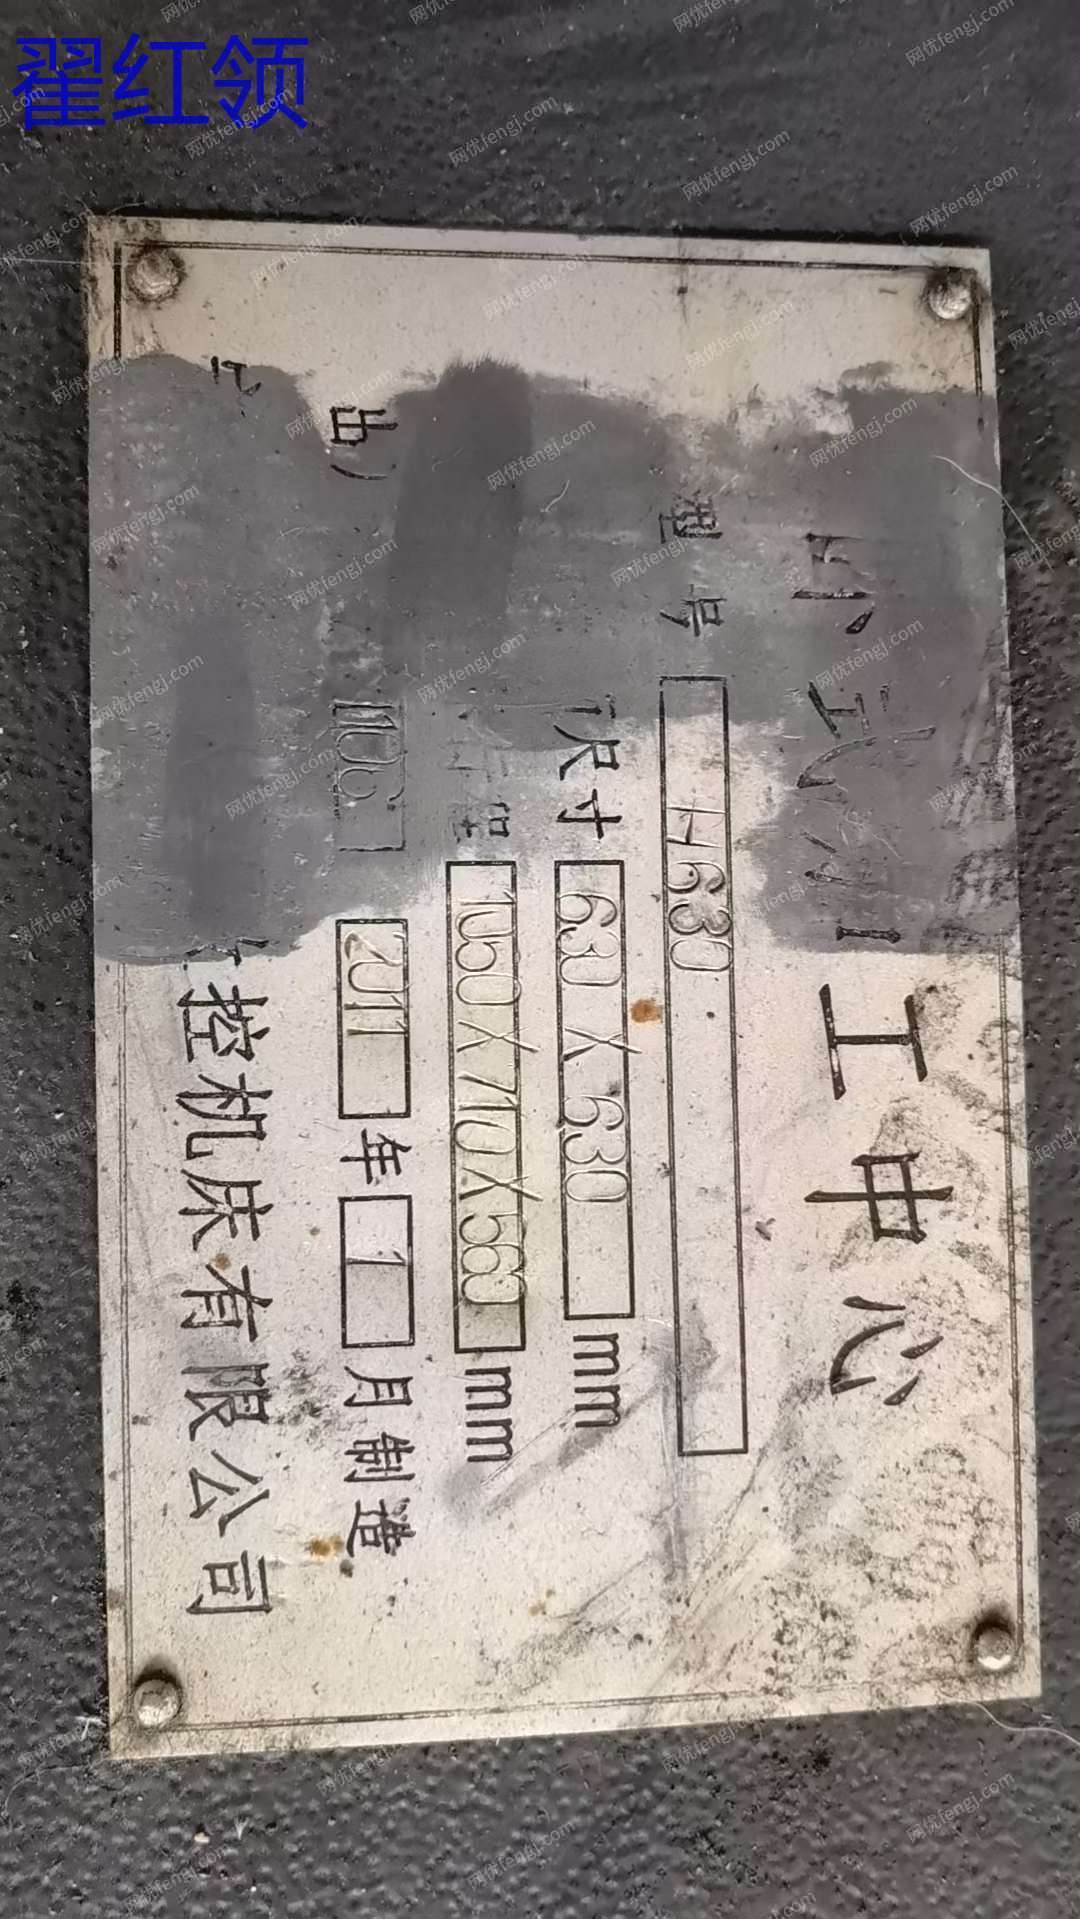 翟红领
卧式加工中心
型号 H630
尺寸 630X630 mm
行程 1050X710X560 mm
出 1106 2011 年 1 月制造
控机床有限公司
网优fengj.com